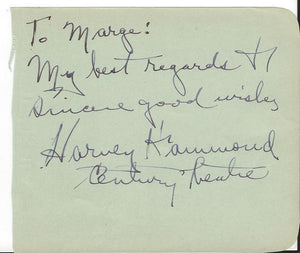 To Marge:
My best regards &
sincere good wishes
Harvey Hammond
Century Theatre